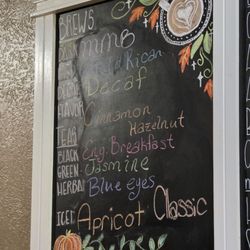 BREWS
DARK mmB
Decaf
FLAVOR Cinnamon
Hazelnut
TEAS
BLACK Eng. Breakfast
GREEN Jasmine
HERBAL Blue eyes
ICED Apricot Classic